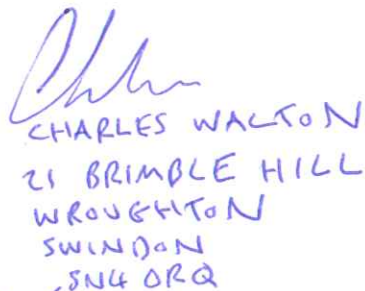 CHARLES WALTON
21 BRIMBLE HILL
WROUGHTON
SWINDON
SN4 0RQ